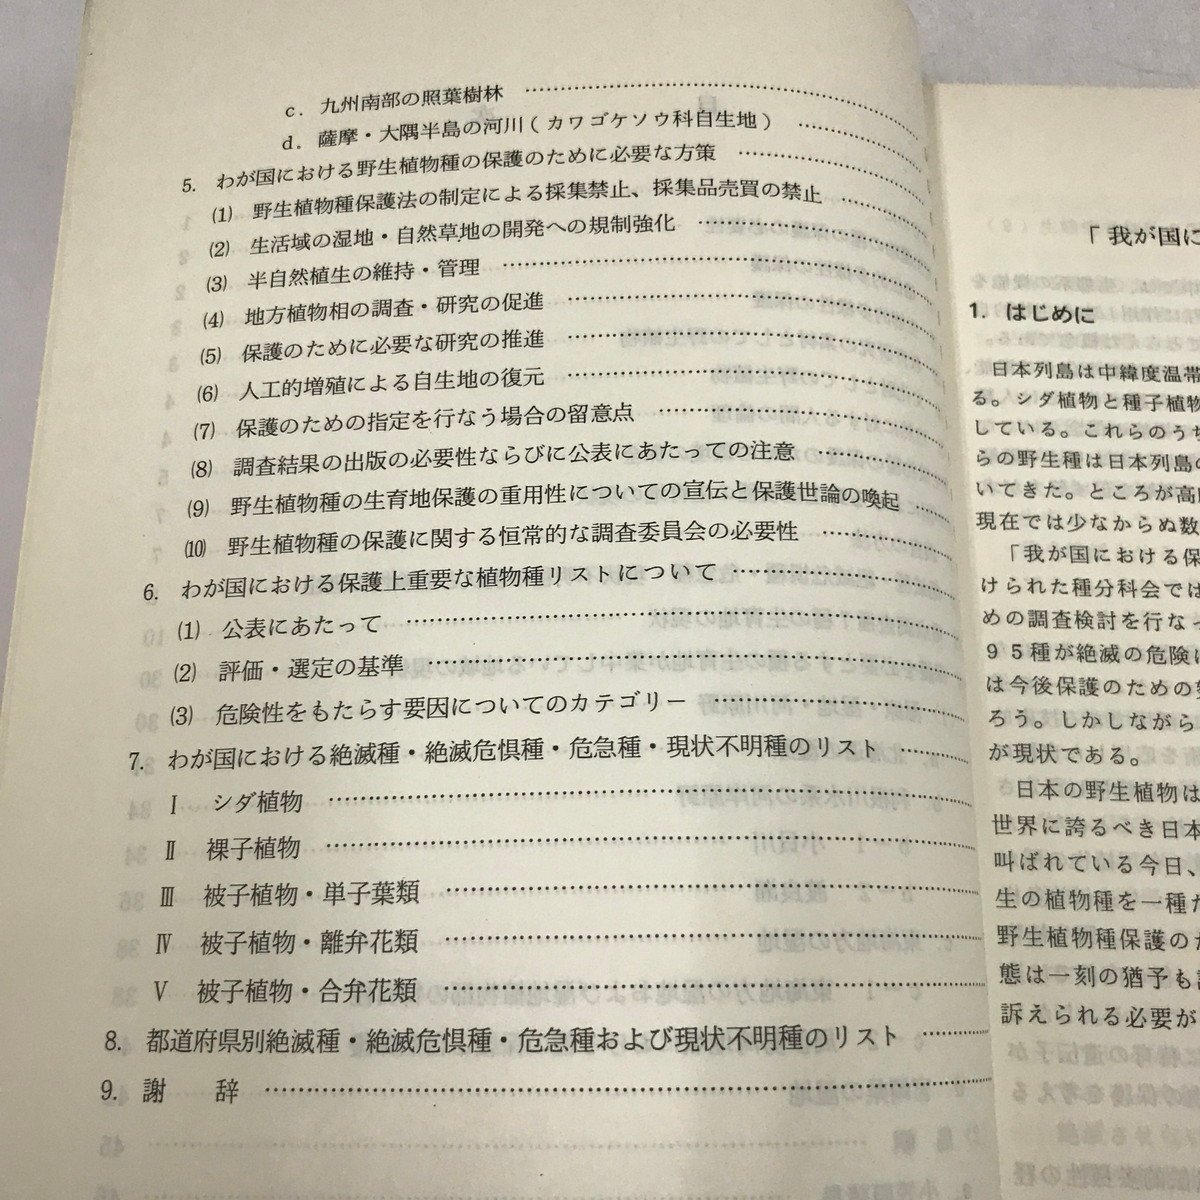 c. 九州南部の照葉樹林
d. 薩摩・大隅半島の河川(カワゴケソウ科自生地)
5. わが国における野生植物種の保護のために必要な方策
(1) 野生植物種保護法の制定による採集禁止、採集品売買の禁止
(2) 生活域の湿地・自然草地の開発への規制強化
(3) 半自然植生の維持・管理
(4) 地方植物相の調査・研究の促進
(5) 保護のために必要な研究の推進
(6) 人工的増殖による自生地の復元
(7) 保護のための指定を行なう場合の留意点
(8) 調査結果の出版の必要性ならびに公表にあたっての注意
(9) 野生植物種の生育地保護の重用性についての宣伝と保護世論の喚起
(10) 野生植物種の保護に関する恒常的な調査委員会の必要性
6. わが国における保護上重要な植物種リストについて
(1) 公表にあたって
(2) 評価・選定の基準
(3) 危険性をもたらす要因についてのカテゴリー
7. わが国における絶滅種・絶滅危惧種・危急種・現状不明種のリスト
Ⅰ シダ植物
Ⅱ 裸子植物
Ⅲ 被子植物・単子葉類
Ⅳ 被子植物・離弁花類
Ⅴ 被子植物・合弁花類
8. 都道府県別絶滅種・絶滅危惧種・危急種および現状不明種のリスト
9. 謝 辞
「我が国に
1. はじめに
日本列島は中緯度温帯
る。シダ植物と種子植物
している。これらのうち
らの野生種は日本列島の
いてきた。ところが高
現在では少なからぬ数
「我が国における保
けられた種分科会では
めの調査検討を行なっ
95種が絶滅の危険に
は今後保護のための
ろう。しかしながら
が現状である。
日本の野生植物は
世界に誇るべき日本
叫ばれている今日、
生の植物種を一種た
野生植物種保護のた
態は一刻の猶予も
訴えられる必要が